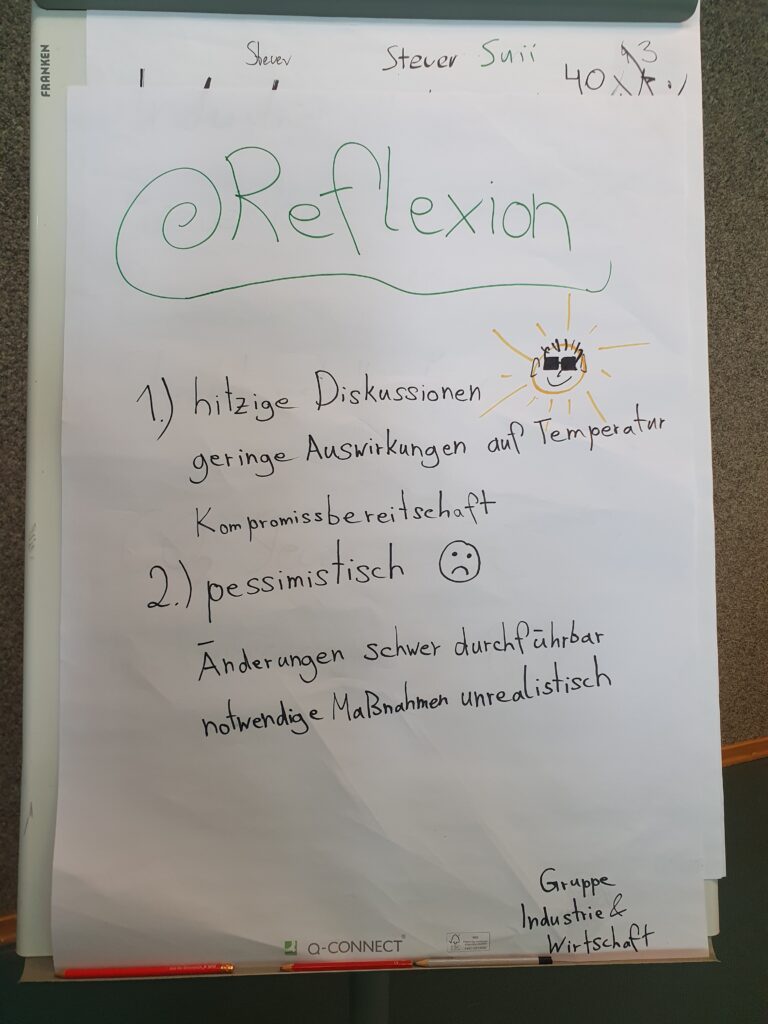 FRANKEN
Steuer
Steuer
40 x
Reflexion
1.) hitzige Diskussionen
geringe Auswirkungen auf Temperatur
Kompromissbereitschaft
2.) pessimistisch
Änderungen schwer durchführbar
notwendige Maßnahmen unrealistisch
Gruppe
Industrie &
Wirtschaft
Q-CONNECT
FSC